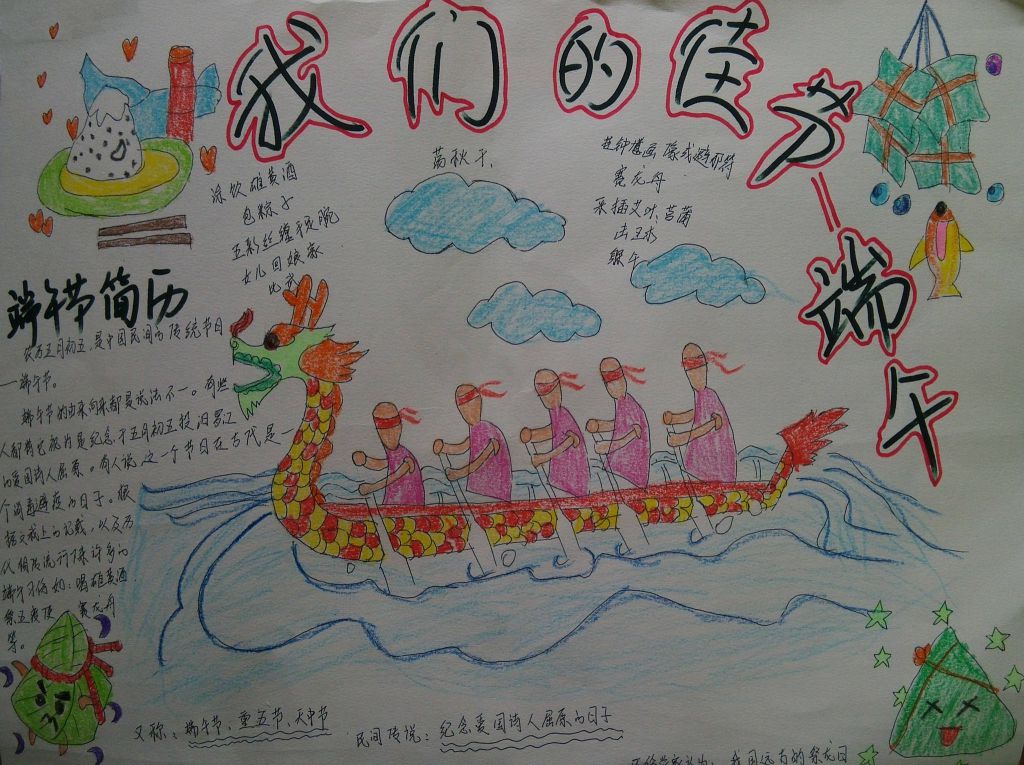 我们的佳节——端午
荡秋千、
涂饮雄黄酒
包粽子
五彩丝缠手腕
女儿回娘家
比武
挂钟馗画像或避邪符
赛龙舟
采插艾叶、菖蒲
击卫水
躲午
端午节简历
农历五月初五，是中国民间的传统节日
—端午节。
端午节的由来向来都是说法不一。有些
人都将它视为是纪念于五月初五投汨罗江
的爱国诗人屈原。有人说这一个节日在古代是一
个闻毒避疫的日子。根
据文戒上的记载，以及历
代相传流行下来许多的
端午习俗如：喝雄黄酒
祭五疫使 赛龙舟
等。
又称：端午节、重五节、天中节
民间传说：纪念爱国诗人屈原的日子
我国远古的祭龙日